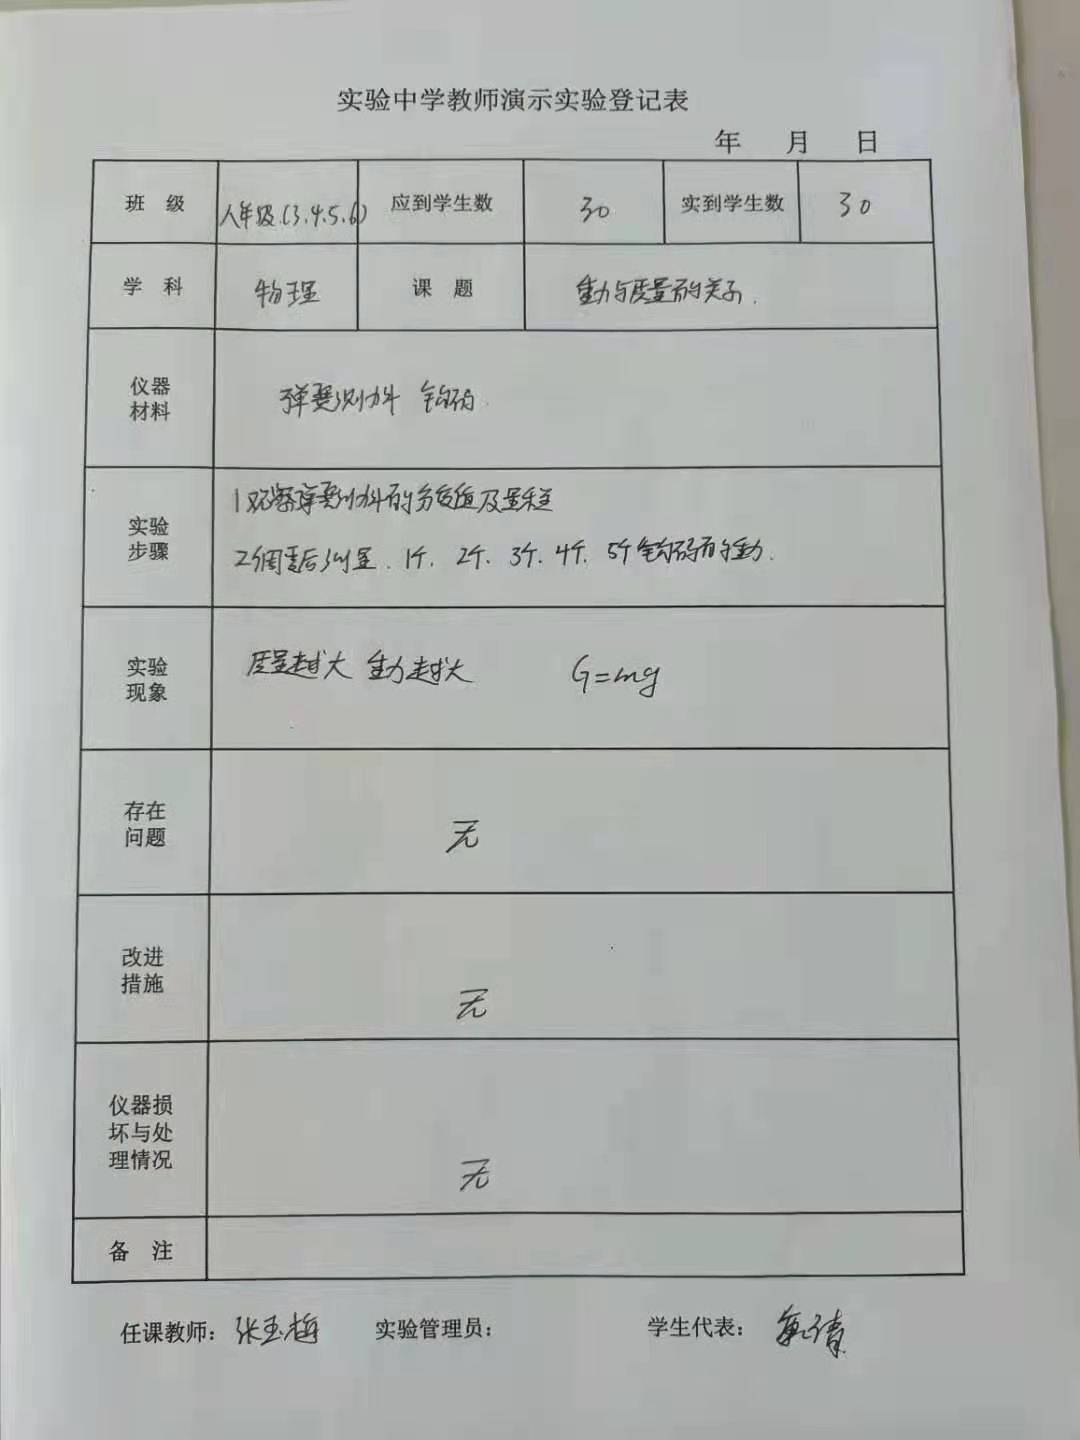 实验中学教师演示实验登记表
年 月 日
班 级 八年级(3.4.5.6) 应到学生数 30 实到学生数 30
学 科 物理 课 题 重力与质量的关系.
仪器
材料
弹簧测力计 钩码.
实验
步骤
1观察弹簧测力计的分度值及量程
2调零后测量.1个.2个.3个.4个.5个钩码的重力.
实验
现象
质量越大 重力越大 G=mg
存在
问题
无
改进
措施
无
仪器损
坏与处
理情况
无
备 注
任课教师：张玉梅 实验管理员： 学生代表：